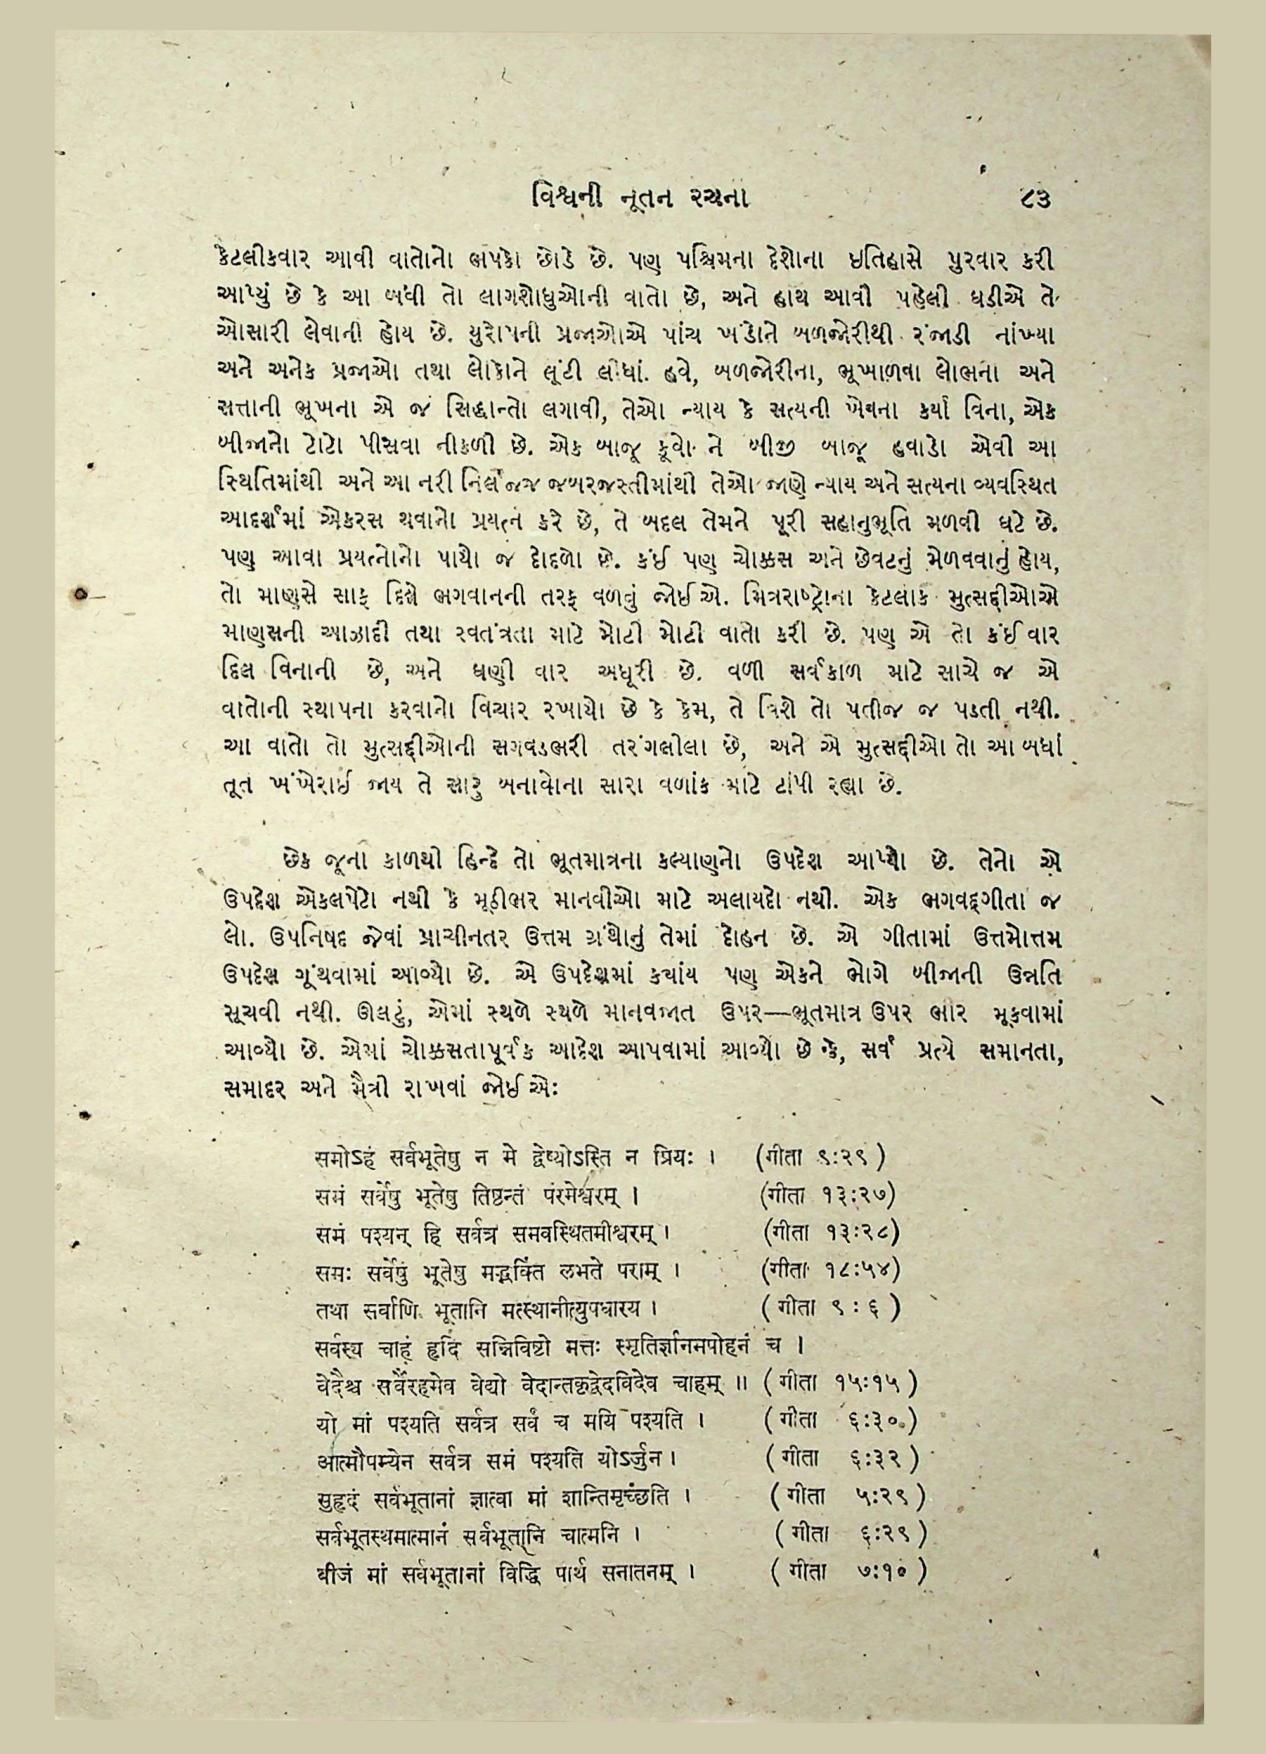 વિશ્વની નૂતન રચના ૮૩
કેટલીકવાર આવી વાતોનો ભપકો છોડે છે. પણ પશ્ચિમના દેશોના ઇતિહાસે પુરવાર કરી
આપ્યું છે કે આ બધી તો લાગશોધુઓની વાતો છે, અને હાથ આવી પહેલી ઘડીએ તે
ઓસારી લેવાની હોય છે. યુરોપની પ્રજાઓએ પાંચ ખંડોને બળજોરીથી રંજાડી નાંખ્યા
અને અનેક પ્રજાઓ તથા લોકોને લૂંટી લીધાં. હવે, બળજોરીના, ભૂખાળવા લોભના અને
સત્તાની ભૂખના એ જ સિદ્ધાન્તો લગાવી, તેઓ ન્યાય કે સત્યની ખેવના કર્યા વિના, એક
બીજાનો ટોટો પીસવા નીકળી છે. એક બાજૂ કૂવો ને બીજી બાજૂ હવાડો એવી આ
સ્થિતિમાંથી અને આ નરી નિર્લજ્જ જબરજસ્તીમાંથી તેઓ જાણે ન્યાય અને સત્યના વ્યવસ્થિત
આદર્શમાં એકરસ થવાનો પ્રયત્ન કરે છે, તે બદલ તેમને પૂરી સહાનુભૂતિ મળવી ઘટે છે.
પણ આવા પ્રયત્નોનો પાયો જ દોદળો છે. કંઈ પણ ચોક્કસ અને છેવટનું મેળવવાનું હોય,
તો માણસે સાફ દિલે ભગવાનની તરફ વળવું જોઈએ. મિત્રરાષ્ટ્રોના કેટલાક મુત્સદ્દીઓએ
માણસની આઝાદી તથા સ્વતંત્રતા માટે મોટી મોટી વાતો કરી છે. પણ એ તો કંઈ વાર
દિલ વિનાની છે, અને ઘણી વાર અધૂરી છે. વળી સર્વકાળ માટે સાચે જ એ
વાતોની સ્થાપના કરવાનો વિચાર રખાયો છે કે કેમ, તે વિશે તો પતીજ જ પડતી નથી.
આ વાતો તો મુત્સદ્દીઓની સગવડભરી તરંગલીલા છે, અને એ મુત્સદ્દીઓ તો આ બધાં
તૂત ખંખેરાઈ જાય તે સારુ બનાવોના સારા વળાંક માટે ટાંપી રહ્યા છે.
છેક જૂના કાળથી હિન્દે તો ભૂતમાત્રના કલ્યાણનો ઉપદેશ આપ્યો છે. તેનો એ
ઉપદેશ એકલપેટો નથી કે મૂઠીભર માનવીઓ માટે અલાયદો નથી. એક ભગવદ્ગીતા જ
લો. ઉપનિષદ જેવાં પ્રાચીનતર ઉત્તમ ગ્રંથોનું તેમાં દોહન છે. એ ગીતામાં ઉત્તમોત્તમ
ઉપદેશ ગૂંથવામાં આવ્યો છે. એ ઉપદેશમાં ક્યાંય પણ એકને ભોગે બીજાની ઉન્નતિ
સૂચવી નથી. ઊલટું, એમાં સ્થળે સ્થળે માનવજાત ઉપર—ભૂતમાત્ર ઉપર ભાર મૂકવામાં
આવ્યો છે. એમાં ચોક્કસતાપૂર્વક આદેશ આપવામાં આવ્યો છે કે, સર્વ પ્રત્યે સમાનતા,
સમાદર અને મૈત્રી રાખવાં જોઈએ:
समोऽहं सर्वभूतेषु न मे द्वेष्योऽस्ति न प्रियः । (गीता ९:२९)
समं सर्वेषु भूतेषु तिष्ठन्तं परमेश्वरम् । (गीता १३:२७)
समं पश्यन् हि सर्वत्र समवस्थितमीश्वरम् । (गीता १३:२८)
समः सर्वेषुं भूतेषु मद्भक्तिं लभते पराम् । (गीता १८:५४)
तथा सर्वाणि भूतानि मत्स्थानीत्युपधारय । (गीता ९:६)
सर्वस्य चाहं हृदि सन्निविष्टो मत्तः स्मृतिर्ज्ञानमपोहनं च ।
वेदैश्च सर्वैरहमेव वेद्यो वेदान्तकृद्वेदविदेव चाहम् ॥ (गीता १५:१५)
यो मां पश्यति सर्वत्र सर्वं च मयि पश्यति । (गीता ६:३०)
आत्मौपम्येन सर्वत्र समं पश्यति योऽर्जुन । (गीता ६:३२)
सुहृदं सर्वभूतानां ज्ञात्वा मां शान्तिमृच्छति । (गीता ५:२९)
सर्वभूतस्थमात्मानं सर्वभूतानि चात्मनि । (गीता ६:२९)
बीजं मां सर्वभूतानां विद्धि पार्थ सनातनम् । (गीता ७:१०)